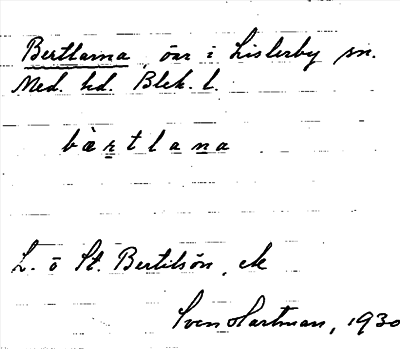 Bertlarna, öar i Listerby sn.
Med. hd. Blek. l.
bàrtlana
L. o St. Bertilsön, ek
Sven Hartman, 1930